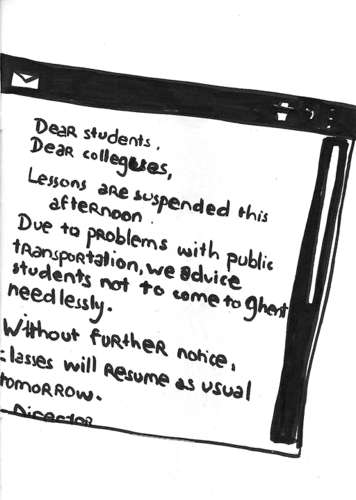 Dear students,
Dear collegues,
Lessons are suspended this
afternoon.
Due to problems with public
transportation, we advice
students not to come to ghent
needlessly.
Without further notice,
classes will resume as usual
tomorrow.
Director